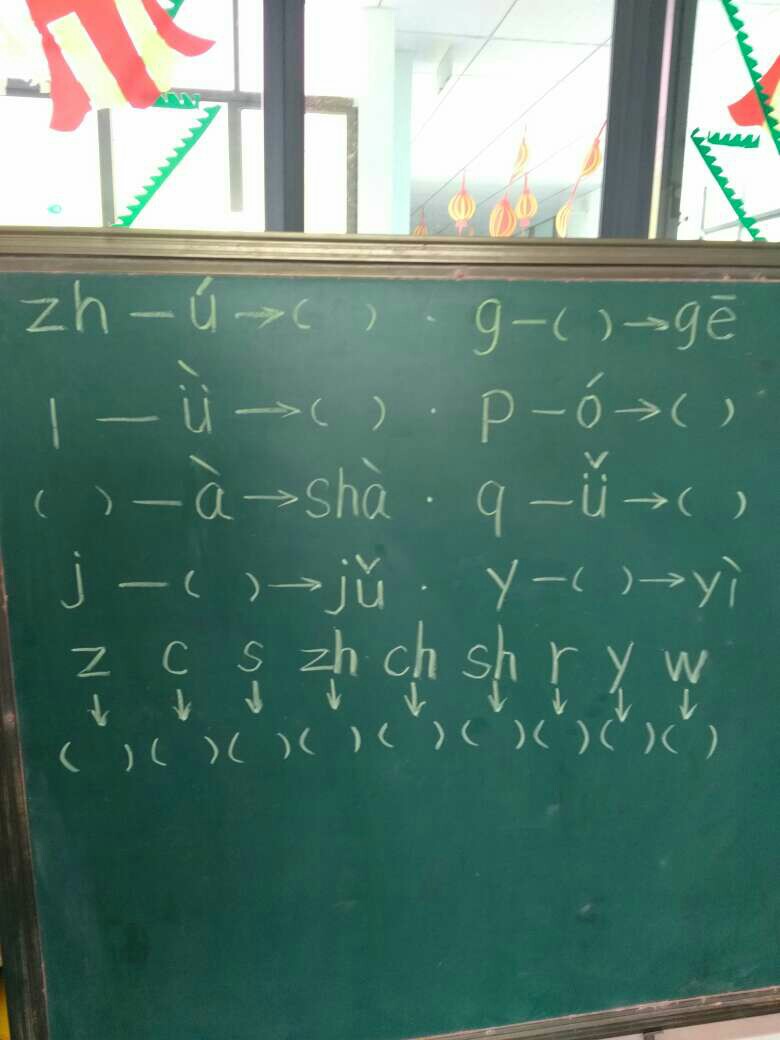 zh — ú → (  ) · g — (  ) → gē
l — ǜ → (  ) · p — ó → (  )
(  ) — à → shà · q — ǚ → (  )
j — (  ) → jǔ · y — (  ) → yì
z c s zh ch sh r y w
↓ ↓ ↓ ↓ ↓ ↓ ↓ ↓ ↓
(  ) (  ) (  ) (  ) (  ) (  ) (  ) (  ) (  )